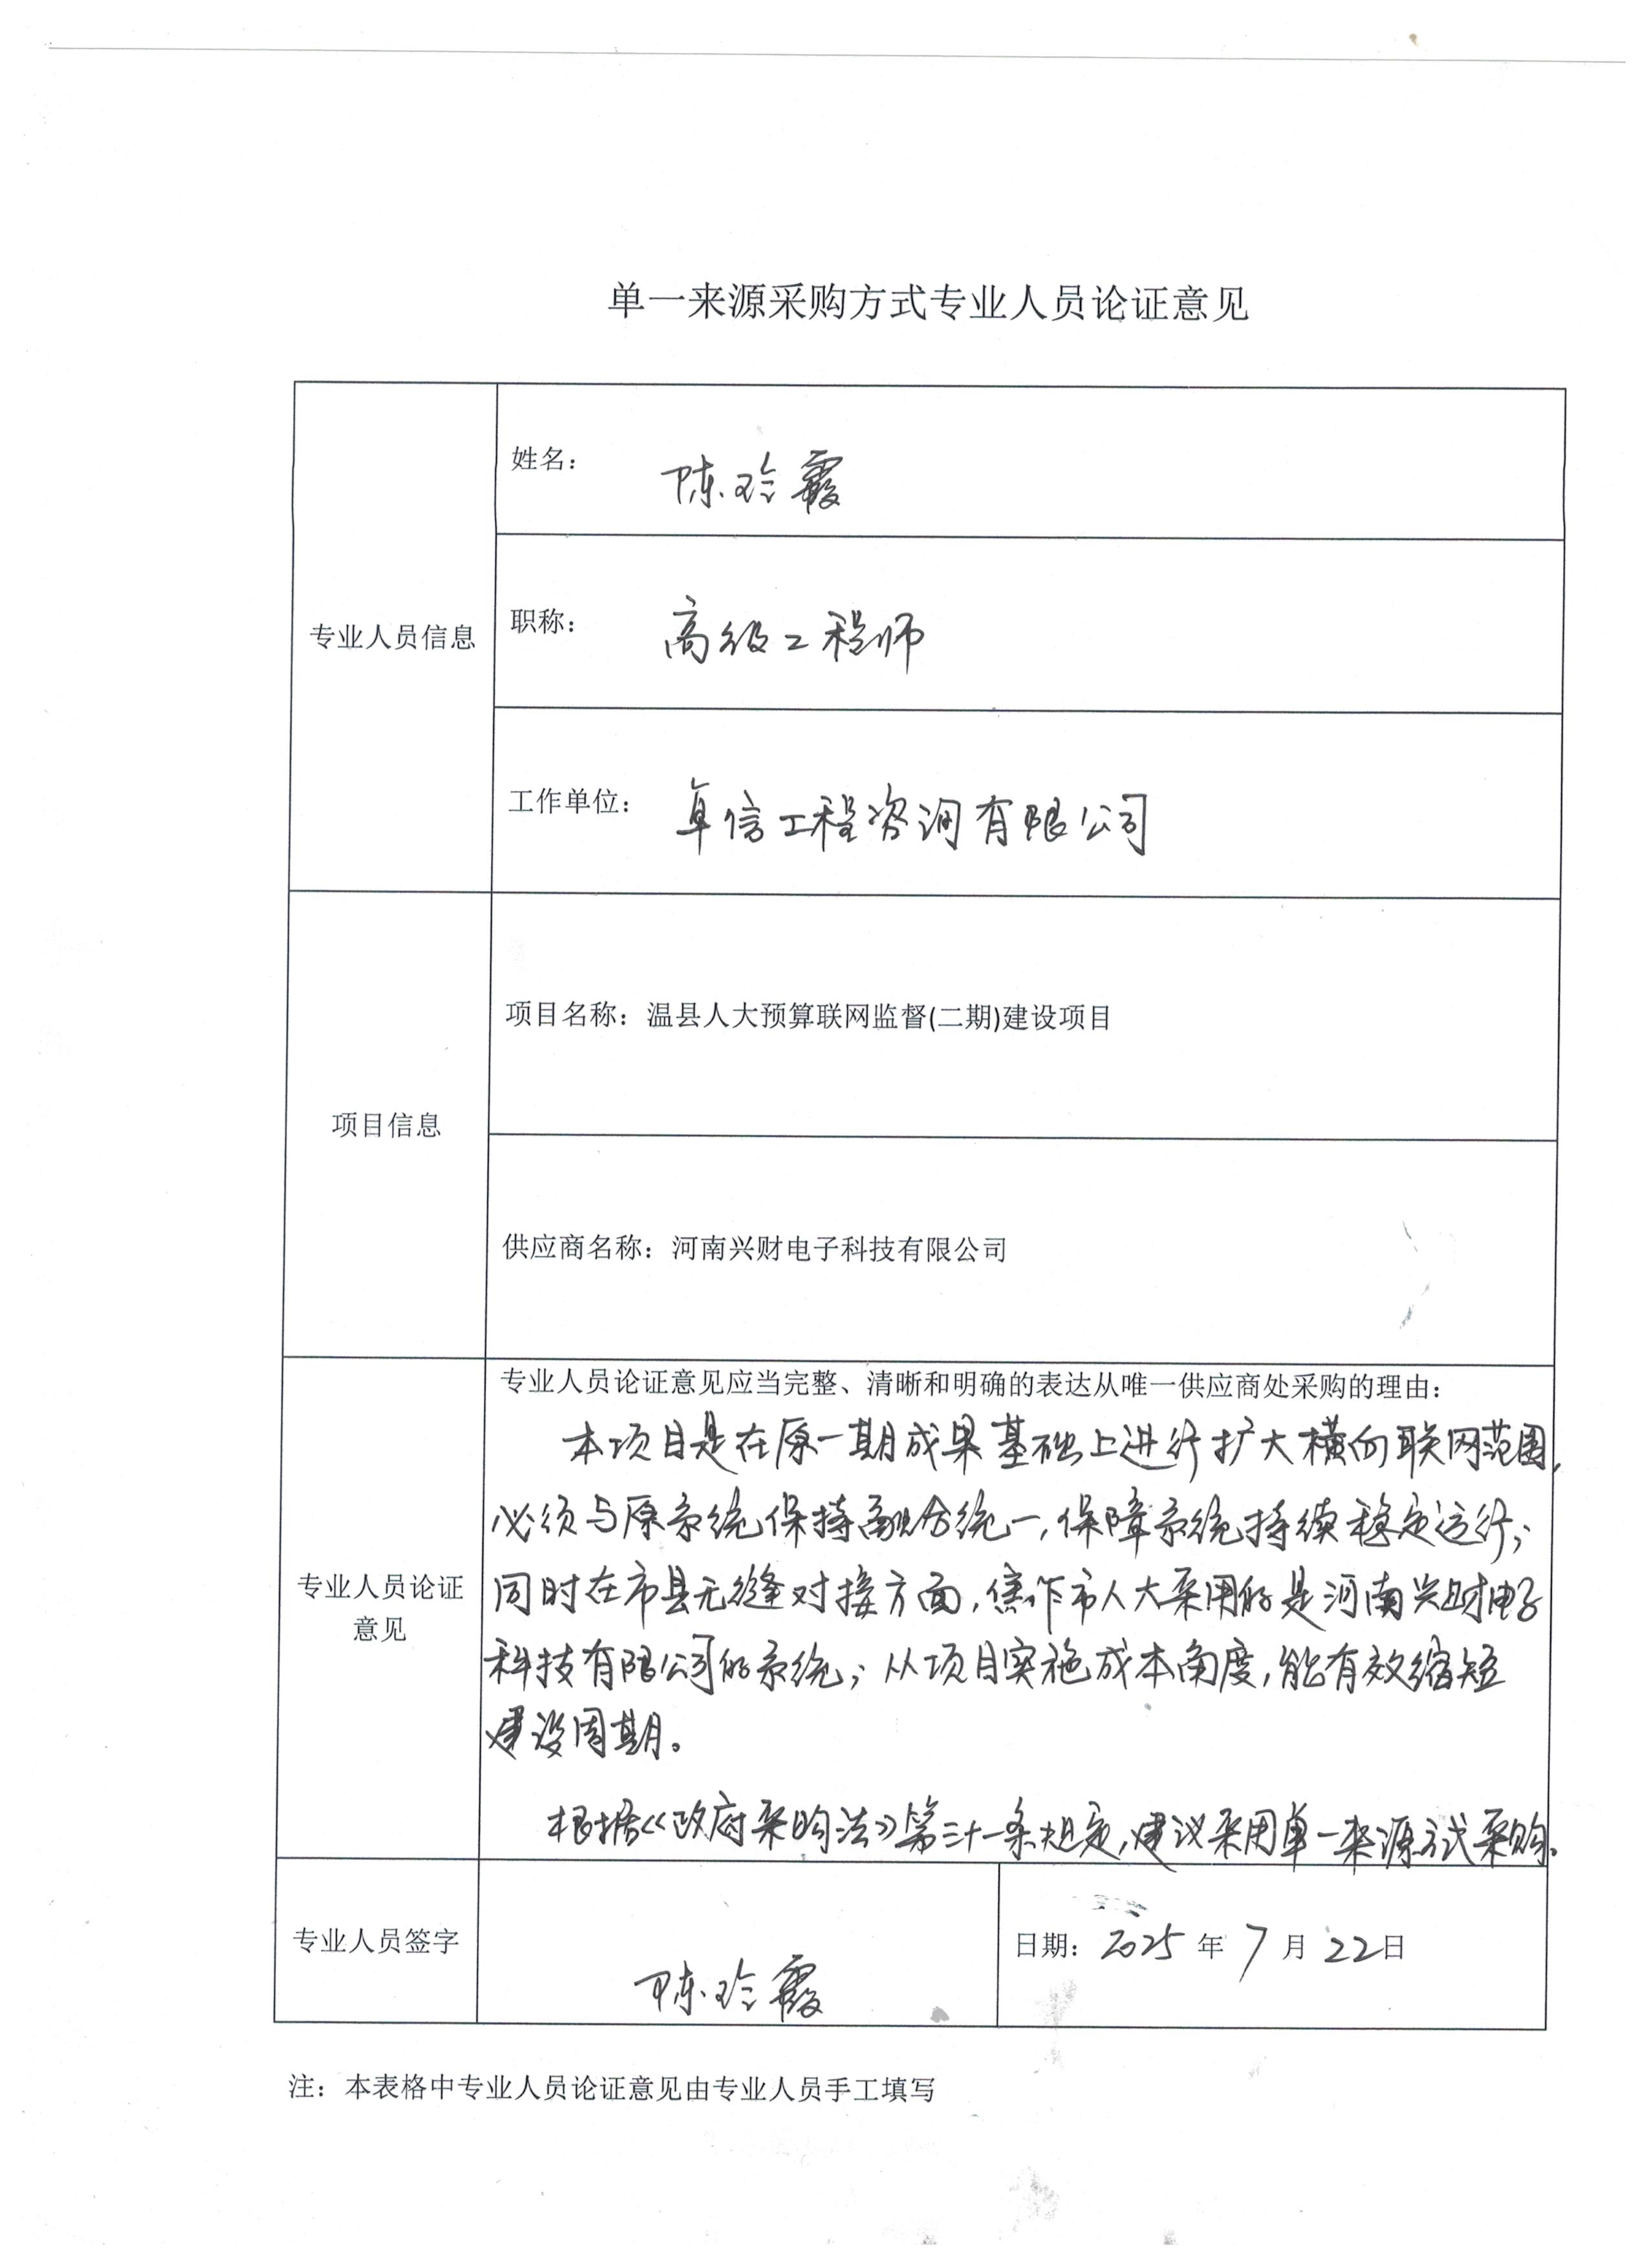 单一来源采购方式专业人员论证意见
专业人员信息
姓名： 陈玲霞
职称： 高级工程师
工作单位： 卓信工程咨询有限公司
项目信息
项目名称：温县人大预算联网监督(二期)建设项目
供应商名称：河南兴财电子科技有限公司
专业人员论证
意见
专业人员论证意见应当完整、清晰和明确的表达从唯一供应商处采购的理由：
本项目是在原一期成果基础上进行扩大横向联网范围，
必须与原系统保持融合统一，保障系统持续稳定运行；
同时在市县无缝对接方面，焦作市人大采用的是河南兴财电子
科技有限公司的系统；从项目实施成本角度，能有效缩短
建设周期。
根据《政府采购法》第三十一条规定，建议采用单一来源方式采购。
专业人员签字
陈玲霞
日期：2025年7月22日
注：本表格中专业人员论证意见由专业人员手工填写